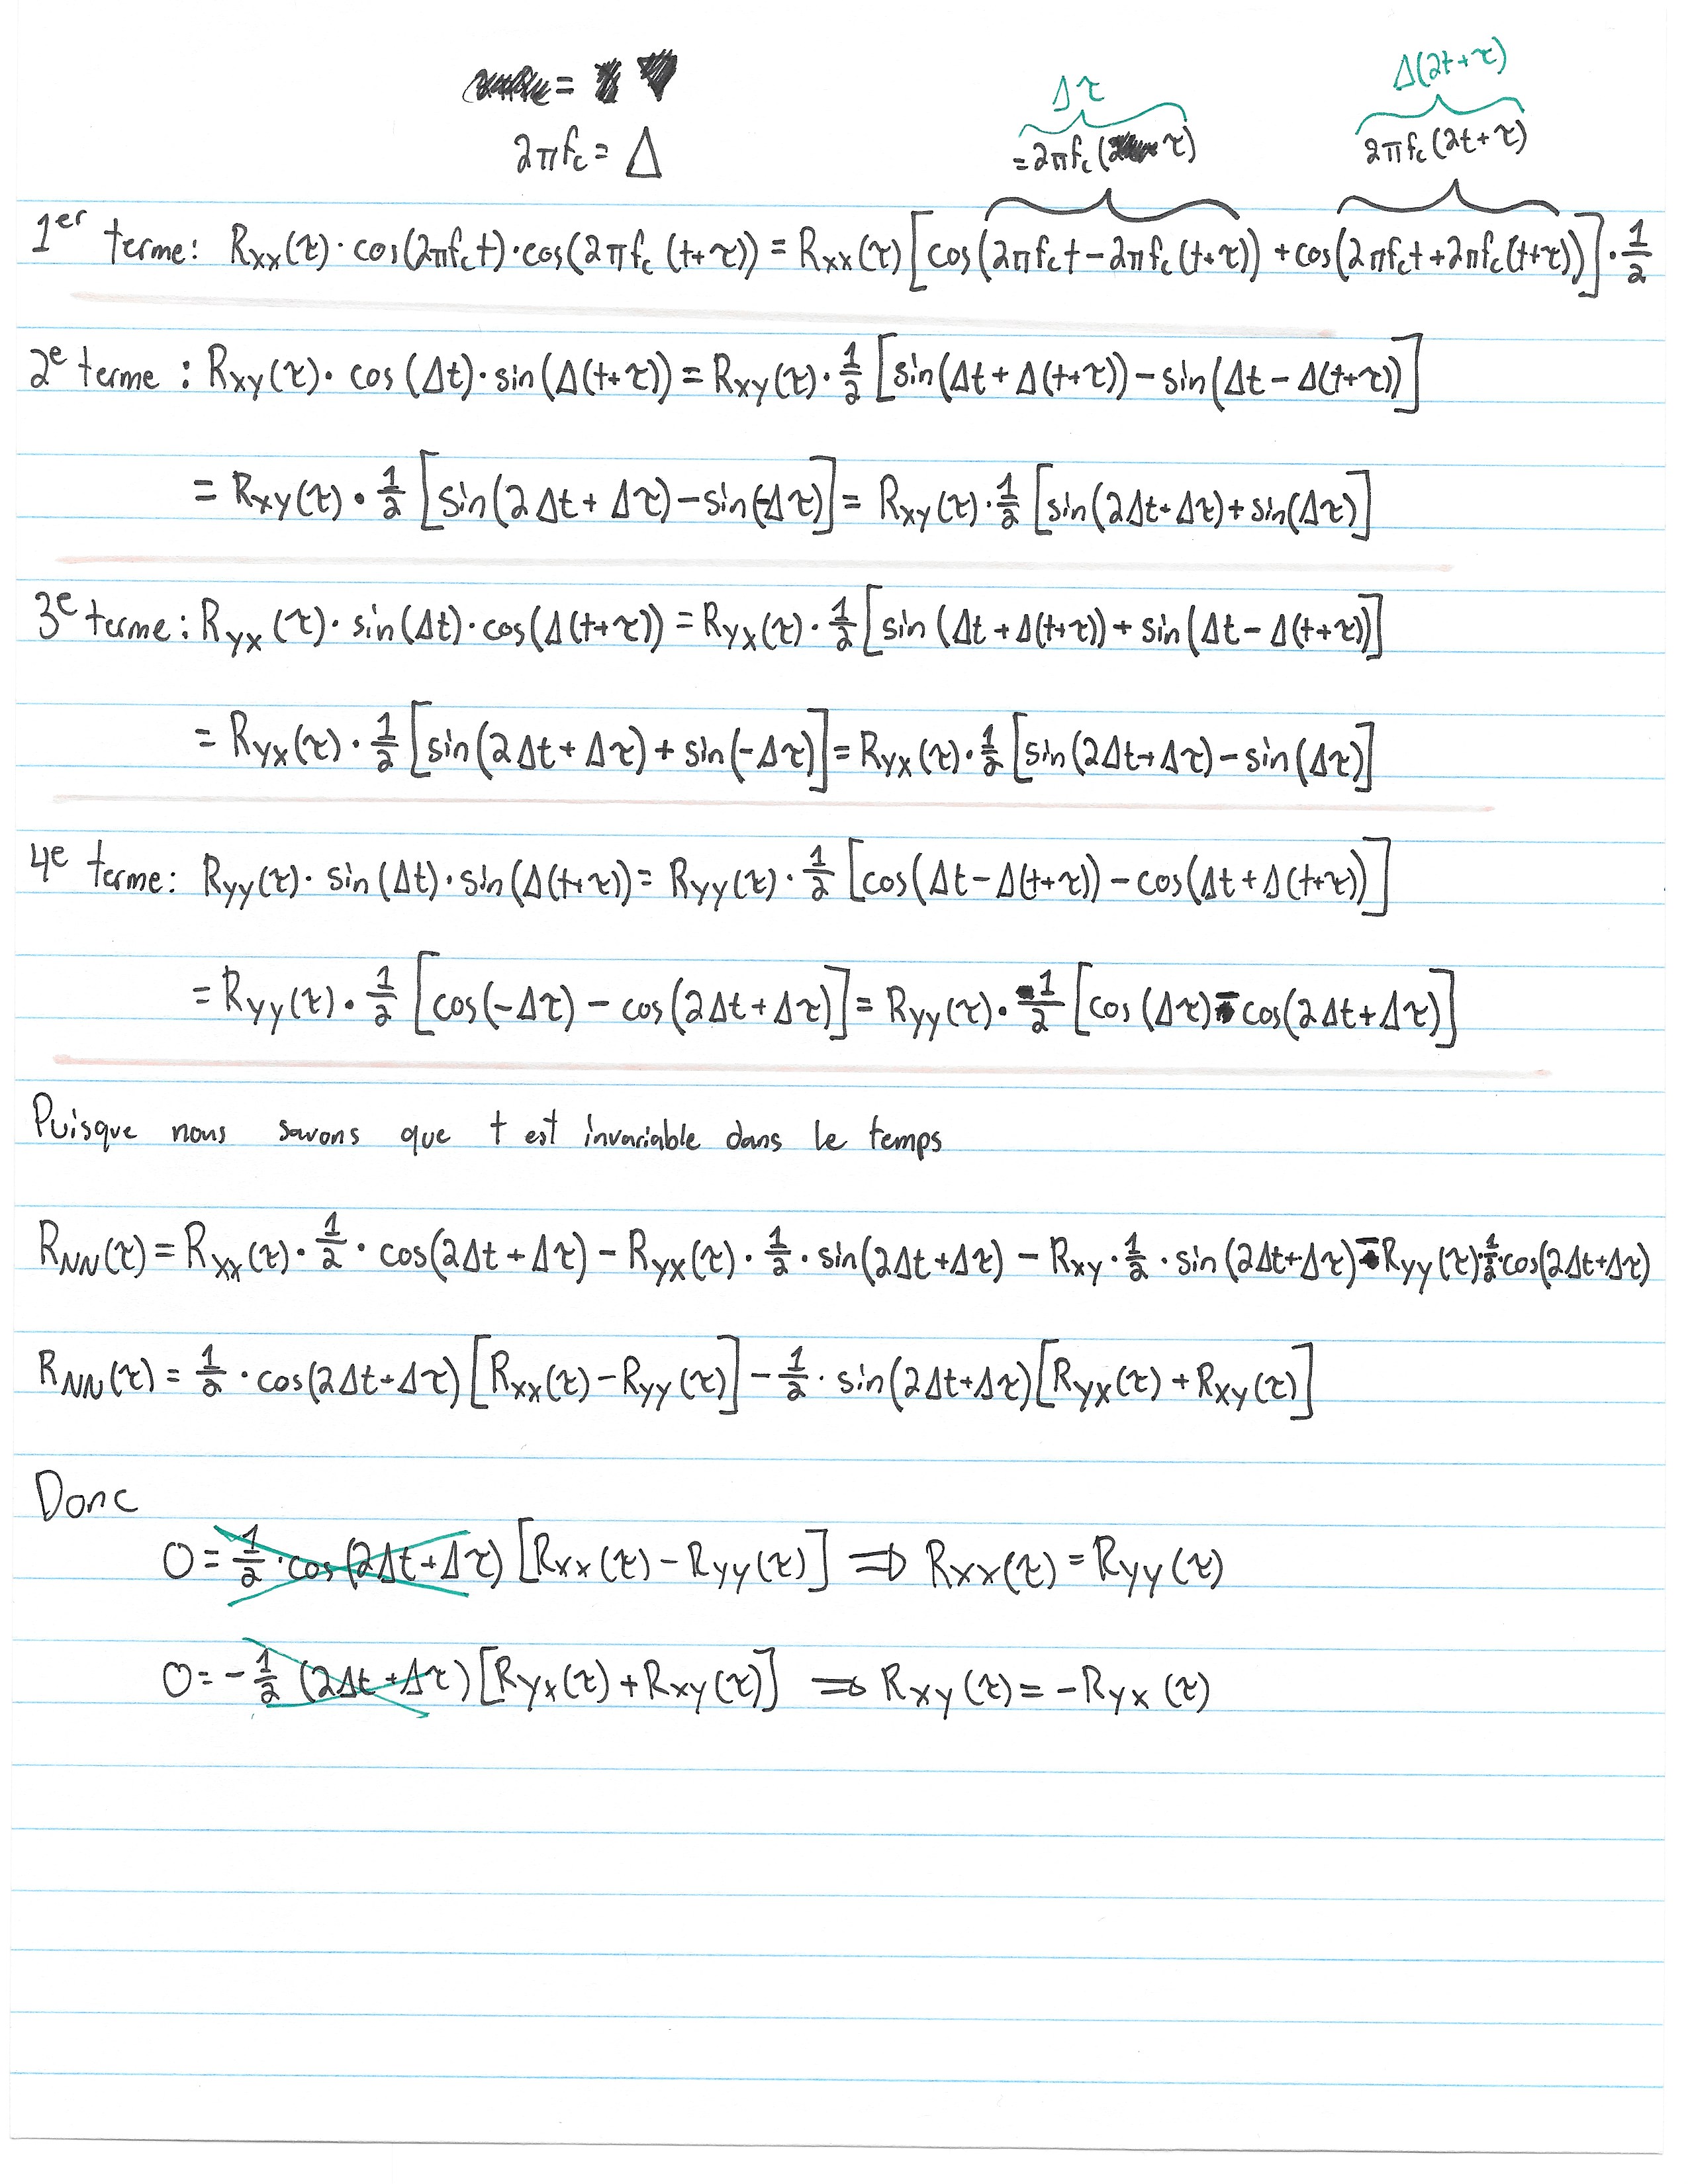 Δτ Δ(2t+τ)
2πfc = Δ =2πfc(τ) 2πfc(2t+τ)
1er terme: Rxx(τ)·cos(2πfct)·cos(2πfc(t+τ)) = Rxx(τ)[cos(2πfct-2πfc(t+τ))+cos(2πfct+2πfc(t+τ))]·1/2
2e terme : Rxy(τ)· cos(Δt)·sin(Δ(t+τ)) = Rxy(τ)·1/2 [sin(Δt+Δ(t+τ))-sin(Δt-Δ(t+τ))]
= Rxy(τ)·1/2 [sin(2Δt+Δτ)-sin(-Δτ)] = Rxy(τ)·1/2 [sin(2Δt+Δτ)+sin(Δτ)]
3e terme: Ryx(τ)·sin(Δt)·cos(Δ(t+τ)) = Ryx(τ)·1/2 [sin(Δt+Δ(t+τ))+sin(Δt-Δ(t+τ))]
= Ryx(τ)·1/2 [sin(2Δt+Δτ)+sin(-Δτ)] = Ryx(τ)·1/2 [sin(2Δt+Δτ)-sin(Δτ)]
4e terme: Ryy(τ)·sin(Δt)·sin(Δ(t+τ)) = Ryy(τ)·1/2 [cos(Δt-Δ(t+τ))-cos(Δt+Δ(t+τ))]
= Ryy(τ)·1/2 [cos(-Δτ)-cos(2Δt+Δτ)] = Ryy(τ)·1/2 [cos(Δτ)-cos(2Δt+Δτ)]
Puisque nous savons que t est invariable dans le temps
RNN(τ) = Rxx(τ)·1/2·cos(2Δt+Δτ) - Ryx(τ)·1/2·sin(2Δt+Δτ) - Rxy·1/2·sin(2Δt+Δτ) - Ryy(τ)·1/2·cos(2Δt+Δτ)
RNN(τ) = 1/2·cos(2Δt+Δτ)[Rxx(τ)-Ryy(τ)] - 1/2·sin(2Δt+Δτ)[Ryx(τ)+Rxy(τ)]
Donc
0 = 1/2·cos(2Δt+Δτ) [Rxx(τ)-Ryy(τ)] ⇒ Rxx(τ) = Ryy(τ)
0 = -1/2 (2Δt+Δτ)[Ryx(τ)+Rxy(τ)] ⇒ Rxy(τ) = -Ryx(τ)